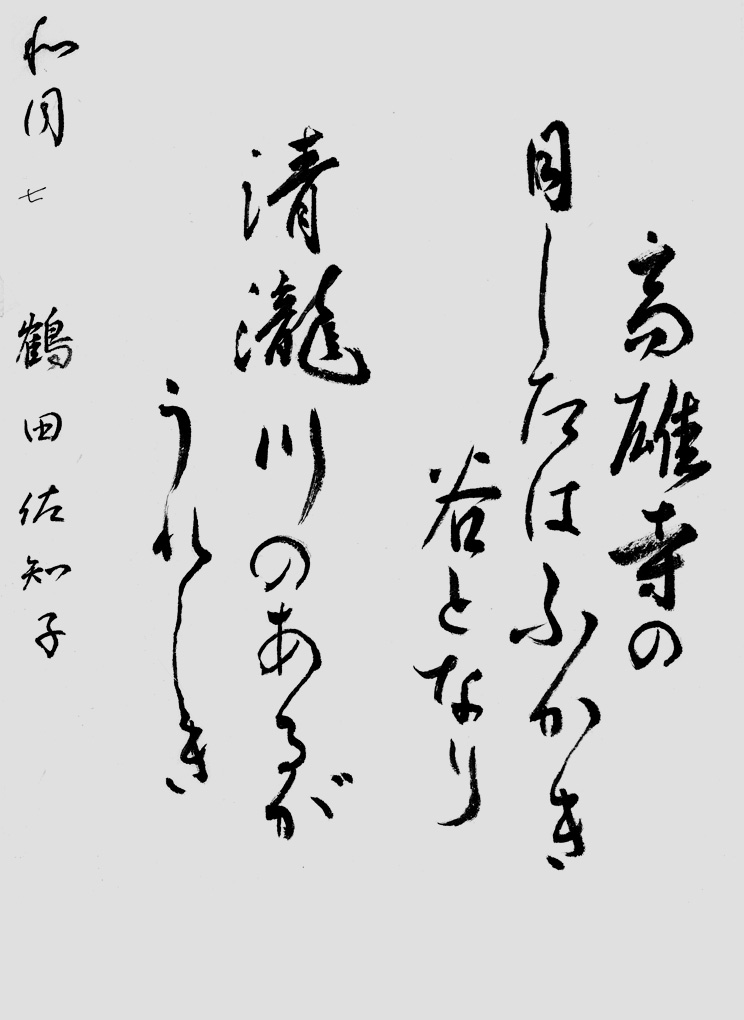 高雄寺の
目したはふかき
谷となり
清瀧川のあるが
うれしき
和同 七 鶴田佐知子